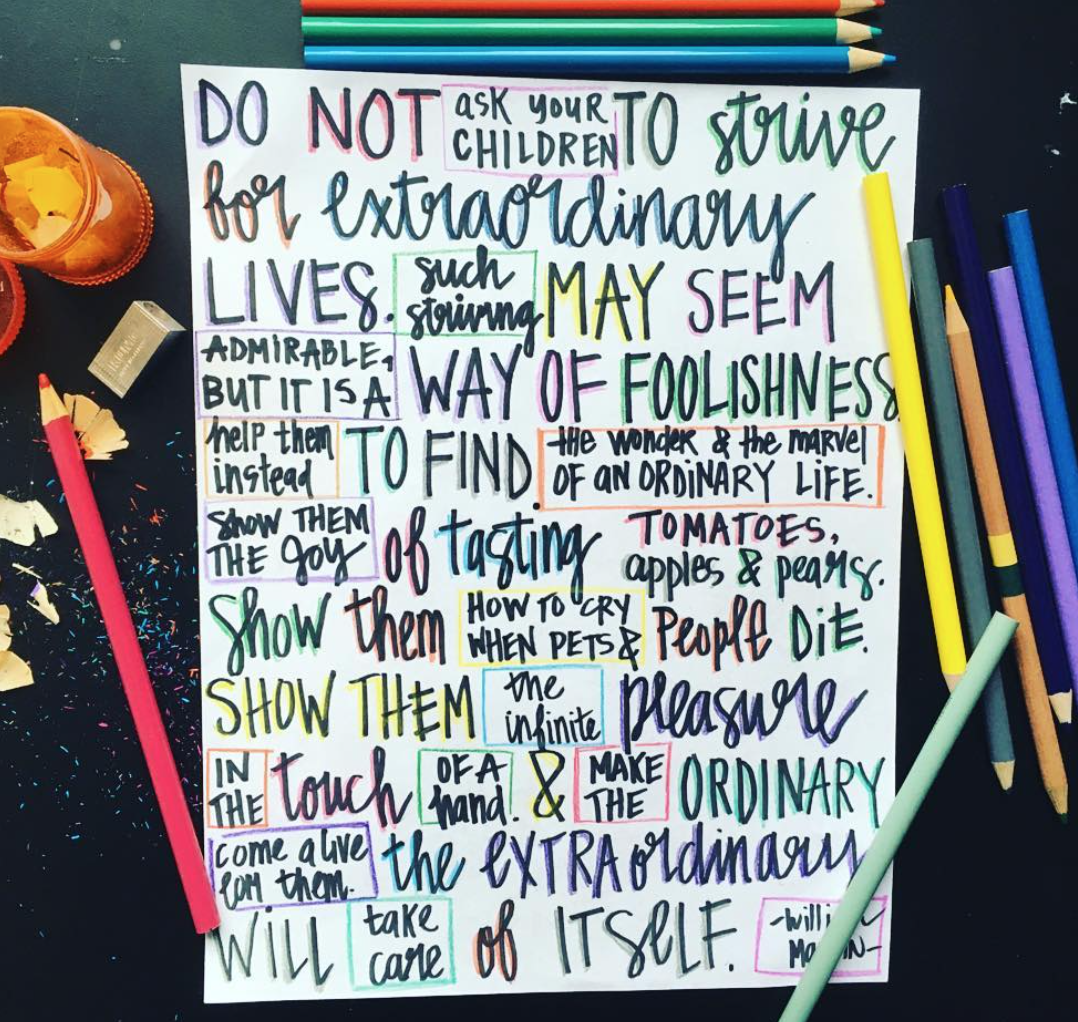 DO NOT ask your CHILDREN TO strive
for extraordinary
LIVES. such striving MAY SEEM
ADMIRABLE, BUT IT IS A WAY OF FOOLISHNESS.
help them instead TO FIND the wonder & the marvel OF AN ORDINARY LIFE.
Show THEM THE Joy of tasting TOMATOES, apples & pears.
Show them HOW TO CRY WHEN PETS & People DiE.
SHOW THEM the infinite pleasure
IN THE touch OF A hand. & MAKE THE ORDINARY
come alive for them. the EXTRAordinary
WiLL take care of ITSELF.